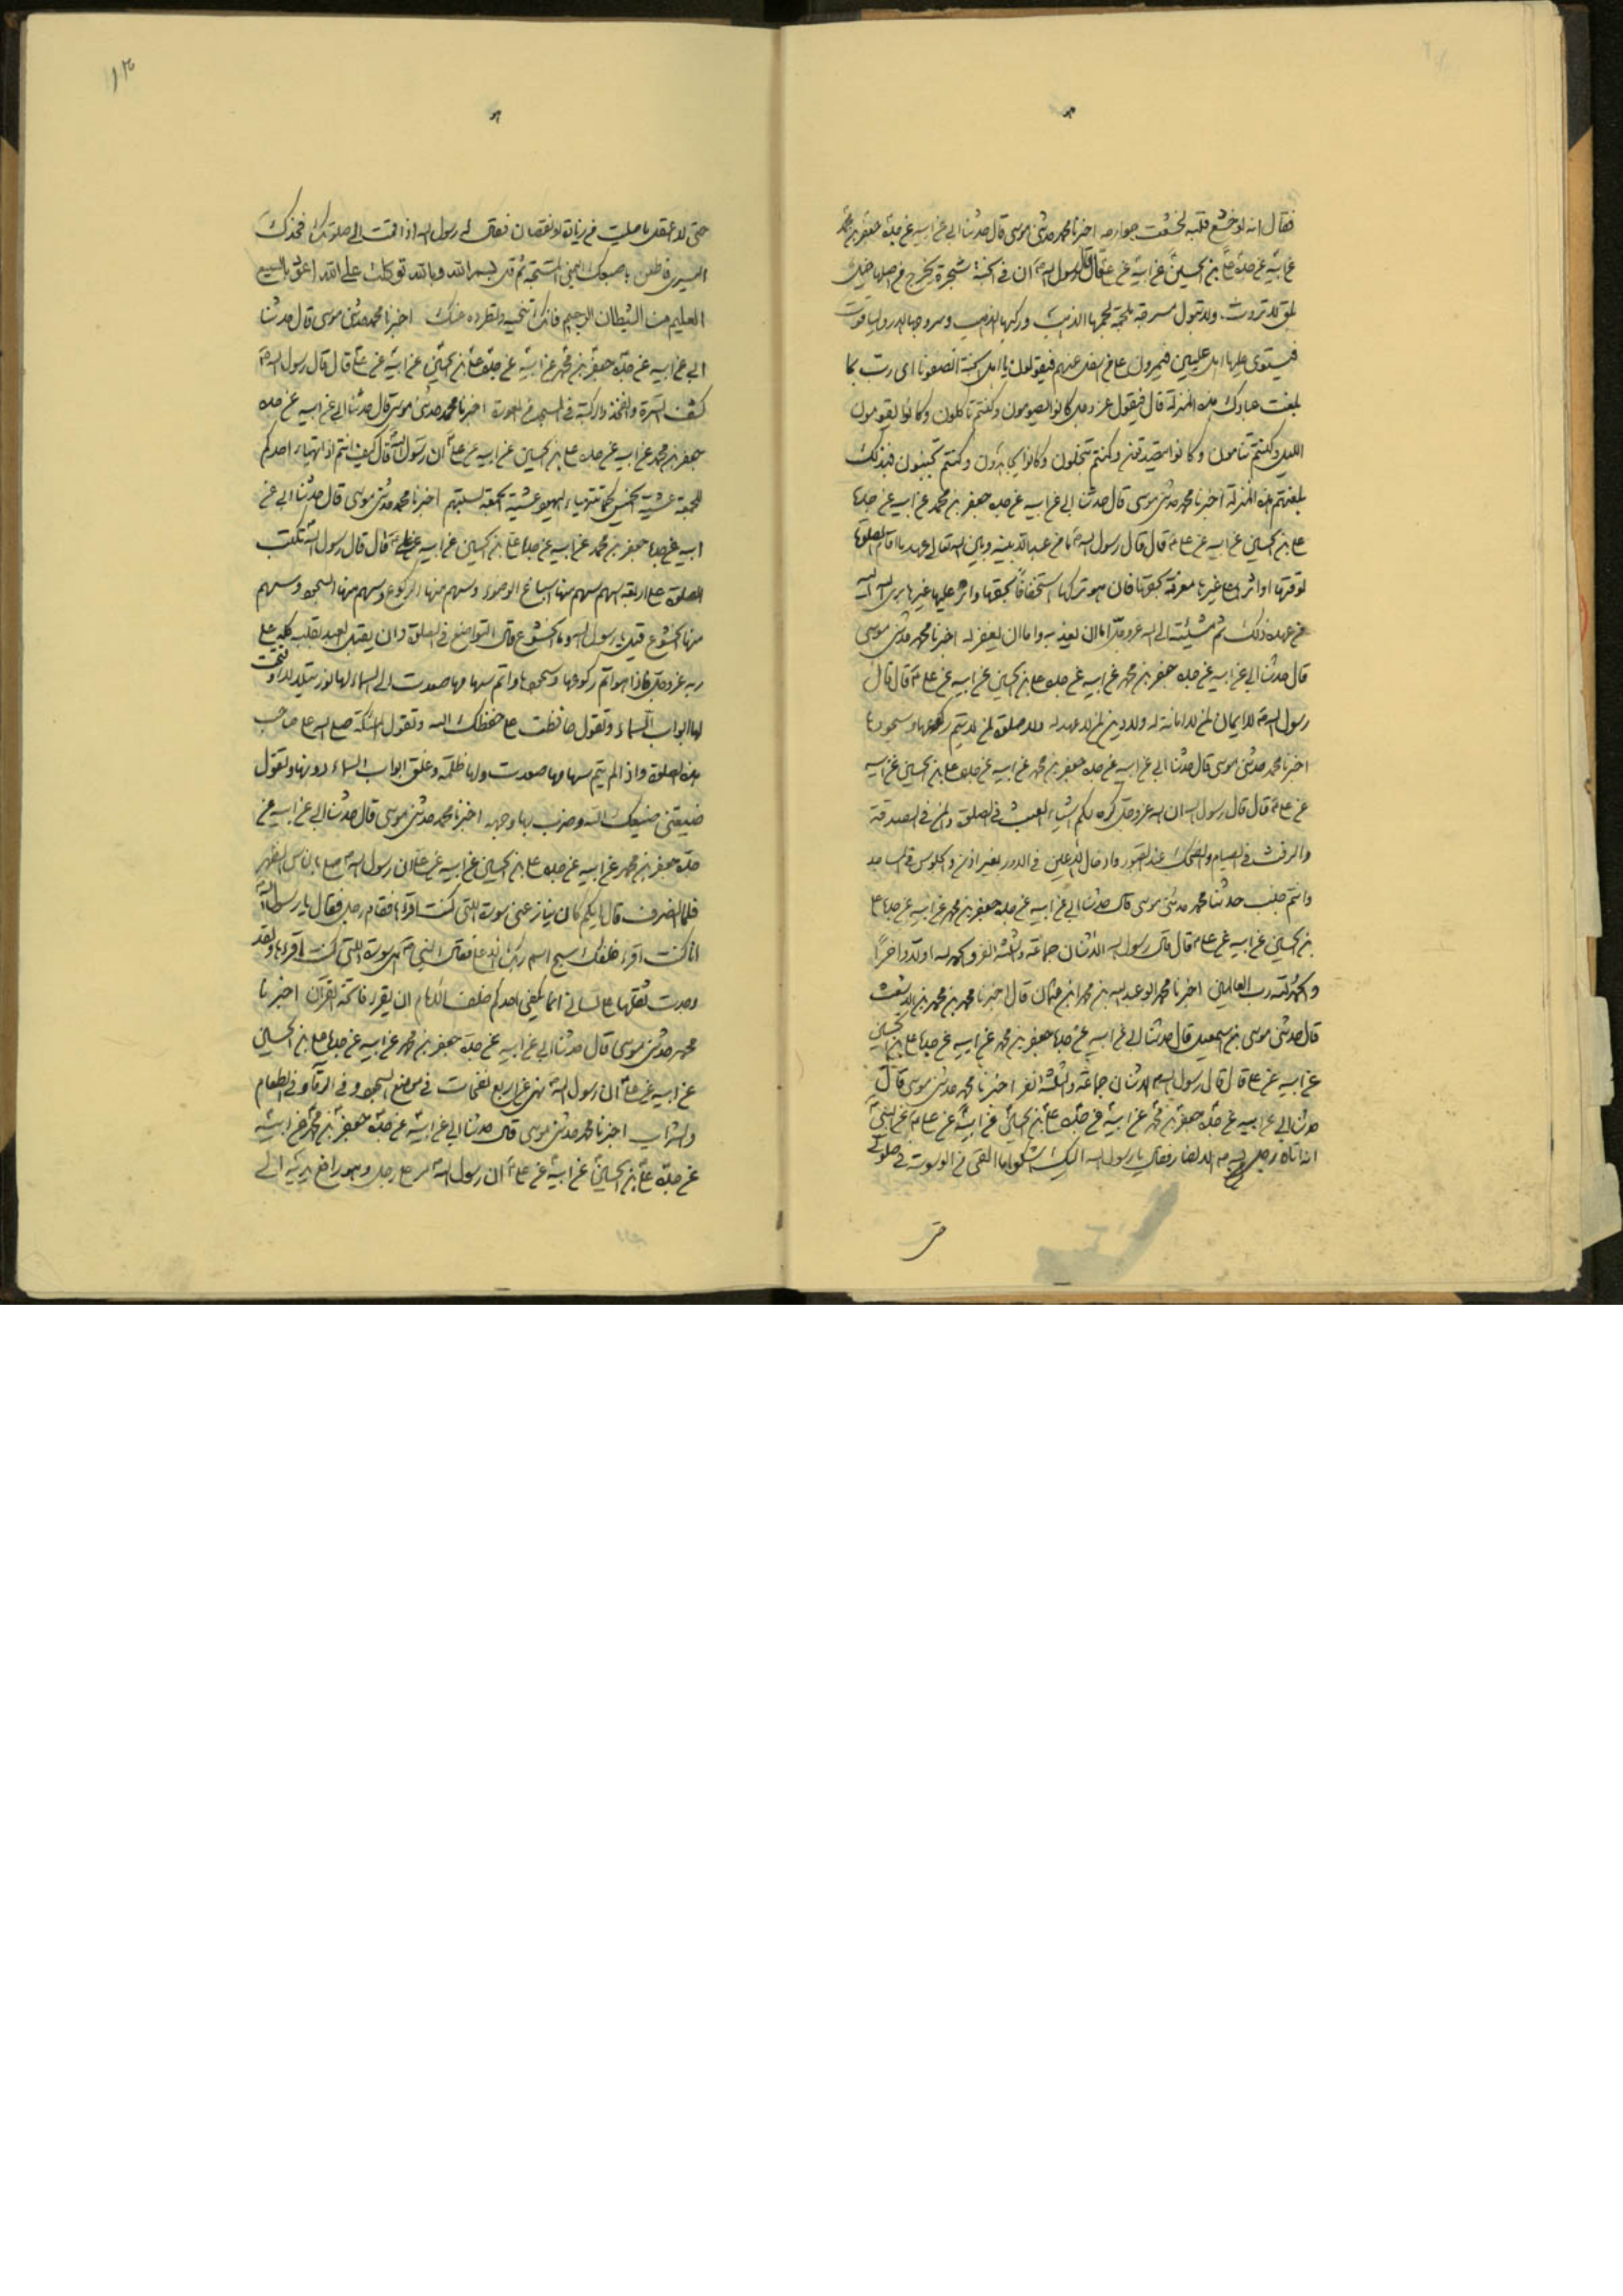 فقال انه لو خشع قلبه لخشعت جوارحه اخبرنا محمد حدثنى موسى قال حدثنا ابى عن ابيه عن جده جعفر بن محمد
عن ابيه عن جده على بن الحسين عن ابيه عن على قال قال رسول الله ان فى الجنة شجرة يخرج من اصلها خيل
بلق لا تروث ولا تبول مسرجة ملجمة لجمها الذهب وركبها الذهب وسروجها الدر والياقوت
فيستوى عليها اهل عليين فيمرون على من اسفل منهم فيقولون يا اهل الجنة انصفونا اى رب بما
بلغت عبادك هذه المنزلة قال فيقول عز وجل كانوا يصومون وكنتم تاكلون وكانوا يقومون
الليل وكنتم تنامون وكانوا يتصدقون وكنتم تبخلون وكانوا يجاهدون وكنتم تجبنون فبذلك
بلغتهم هذه المنزلة اخبرنا محمد حدثنى موسى قال حدثنا ابى عن ابيه عن جده جعفر بن محمد عن ابيه عن جده
على بن الحسين عن ابيه عن على قال قال رسول الله ما من عبد الا بينه وبين الله تعالى عهد ما اقام الصلوة
لوقتها او اثرها على غيرها معرفة بحقها فان هو تركها استخفافا بحقها واثر عليها غيرها برئ الله اليه
من عهده ذلك ثم مشيئته الى الله عز وجل اما ان يعذبه واما ان يغفر له اخبرنا محمد حدثنى موسى
قال حدثنا ابى عن ابيه عن جده جعفر بن محمد عن ابيه عن جده على بن الحسين عن ابيه عن على قال قال
رسول الله لا ايمان لمن لا امانة له ولا دين لمن لا عهد له ولا صلوة لمن لا يتم ركوعها وسجودها
اخبرنا محمد حدثنى موسى قال حدثنا ابى عن ابيه عن جده جعفر بن محمد عن ابيه عن جده على بن الحسين عن ابيه
عن على قال قال رسول الله ان الله عز وجل كره لكم اشياء العبث فى الصلوة والمن فى الصدقة
والرفث فى الصيام والضحك عند القبور وادخال الاعين فى الدور بغير اذن والجلوس فى المساجد
وانتم جنب حدثنا محمد حدثنى موسى قال حدثنا ابى عن ابيه عن جده جعفر بن محمد عن ابيه عن جده على
بن الحسين عن ابيه عن على قال قال رسول الله الاثنان جماعة والثلثة نفر والحمد لله اولا واخرا
والحمد لله رب العالمين اخبرنا محمد ابو عبد الله بن محمد بن عثمان قال اخبرنا محمد بن محمد بن الاشعث
قال حدثنى موسى بن اسمعيل قال حدثنا ابى عن ابيه عن جده جعفر بن محمد عن ابيه عن جده على بن الحسين
عن ابيه عن على قال قال رسول الله الاثنان جماعة والثلثة نفر اخبرنا محمد حدثنى موسى قال
حدثنا ابى عن ابيه عن جده جعفر بن محمد عن ابيه عن جده على بن الحسين عن ابيه عن على عن النبى
انه اتاه رجل من الانصار فقال يا رسول الله اليك اشكو ما القى من الوسوسة فى صلوتى
حتى
حتى لا اعقل ما صليت من زيادة او نقصان فقال له رسول الله اذا قمت الى صلوتك فخذك
اليسرى فاطعن باصبعك اليمنى المسبحة ثم قل بسم الله وبالله توكلت على الله اعوذ بالله السميع
العليم من الشيطان الرجيم فانك تنحيه وتطرده عنك اخبرنا محمد حدثنى موسى قال حدثنا
ابى عن ابيه عن جده جعفر بن محمد عن ابيه عن جده على بن الحسين عن ابيه عن على قال قال رسول الله
كشف السرة والفخذ والركبة فى المسجد من العورة اخبرنا محمد حدثنى موسى قال حدثنا ابى عن ابيه عن جده
جعفر بن محمد عن ابيه عن جده على بن الحسين عن ابيه عن على ان رسول الله قال كيف انتم اذا تهيا احدكم
للجمعة عشية الخميس كما تتهيا اليهود عشية الجمعة لسبتهم اخبرنا محمد حدثنى موسى قال حدثنا ابى عن
ابيه عن جده جعفر بن محمد عن ابيه عن جده على بن الحسين عن ابيه عن على قال قال رسول الله تكتب
الصلوة على اربعة اسهم سهم منها اسباغ الوضوء وسهم منها الركوع وسهم منها السجود وسهم
منها الخشوع قيل يا رسول الله وما الخشوع قال التواضع فى الصلوة وان يقبل العبد بقلبه كله على
ربه عز وجل فاذا هو اتم ركوعها وسجودها واتم سهامها صعدت الى السماء لها نور يتلالا وفتحت
لها ابواب السماء وتقول حافظت على حفظك الله وتقول الملئكة صلى الله على صاحب
هذه الصلوة واذا لم يتم سهامها صعدت ولها ظلمة وغلق ابواب السماء دونها وتقول
ضيعتنى ضيعك الله وضرب بها وجهه اخبرنا محمد حدثنى موسى قال حدثنا ابى عن ابيه عن
جده جعفر بن محمد عن ابيه عن جده على بن الحسين عن ابيه عن على ان رسول الله صلى بالناس الظهر
فلما انصرف قال ايكم كان ينازعنى سورة التى كنت اقرءها فقام رجل فقال يا رسول الله
انا كنت اقرء خلفك سبح اسم ربك الاعلى فقال النبى هى سورة التى كنت اقرءها ولقد
وجدت ثقلها على لسانى انما يكفى احدكم خلف الامام ان يقرء فاتحة القران اخبرنا
محمد حدثنى موسى قال حدثنا ابى عن ابيه عن جده جعفر بن محمد عن ابيه عن جده على بن الحسين
عن ابيه عن على ان رسول الله نهى عن اربع نفخات فى موضع السجود وفى الرقى وفى الطعام
والشراب اخبرنا محمد حدثنى موسى قال حدثنا ابى عن ابيه عن جده جعفر بن محمد عن ابيه
عن جده على بن الحسين عن ابيه عن على ان رسول الله مر على رجل وهو رافع يديه الى